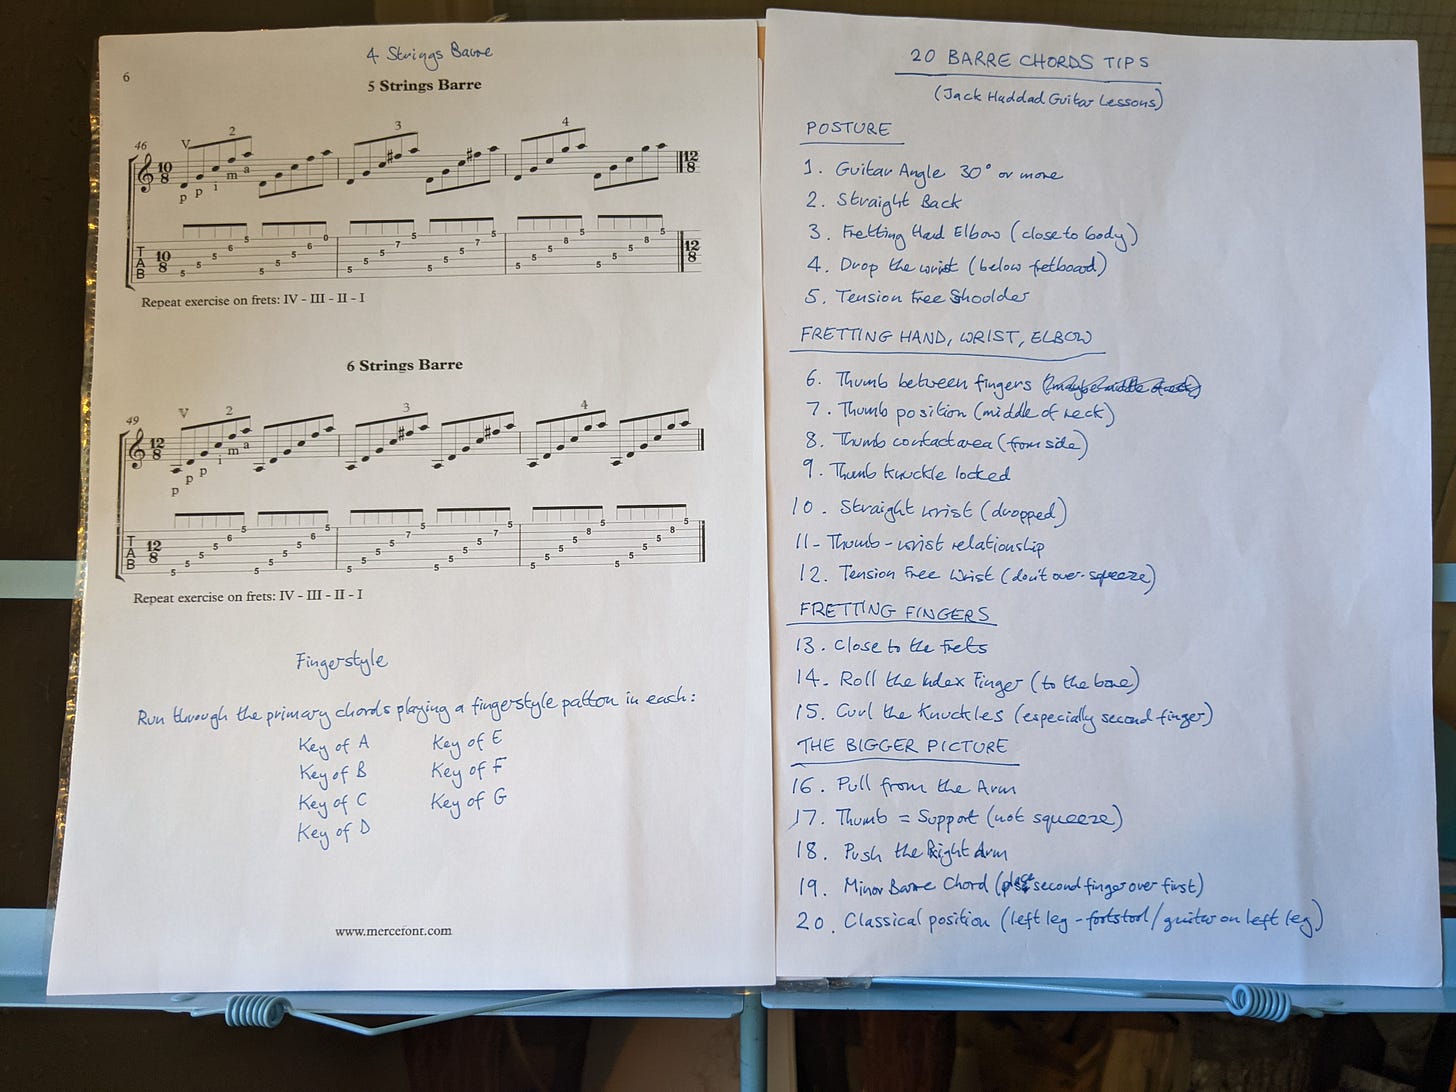 4 Strings Barre
6
5 Strings Barre
46
V 2 3 4
10 8 12 8
p p i m a
T A B
10 8 12 8
5 5 5 6 5 5 5 5 6 0 5 5 5 7 5 5 5 5 7 5 5 5 5 8 5 5 5 5 8 5
Repeat exercise on frets: IV - III - II - I
6 Strings Barre
49
V 2 3 4
12 8
p p p i m a
T A B
12 8
5 5 5 5 6 5 5 5 5 5 6 5 5 5 5 5 7 5 5 5 5 5 7 5 5 5 5 5 8 5 5 5 5 5 8 5
Repeat exercise on frets: IV - III - II - I
Fingerstyle
Run through the primary chords playing a fingerstyle patton in each:
Key of A Key of E
Key of B Key of F
Key of C Key of G
Key of D
www.mercefont.com
20 BARRE CHORDS TIPS
(Jack Haddad Guitar Lessons)
POSTURE
1. Guitar Angle 30° or more
2. Straight Back
3. Fretting Had Elbow (close to body)
4. Drop the wrist (below fetboard)
5. Tension Free Shoolder
FRETTING HAND, WRIST, ELBOW
6. Thumb between fingers
7. Thumb position (middle of neck)
8. Thumb contact area (from side)
9. Thumb Knuckle locked
10. Straight wrist (dropped)
11- Thumb - wrist relationship
12. Tension Free Wrist (don't over-squeeze)
FRETTING FINGERS
13. Close to the Frets
14. Roll the Index Finger (to the bone)
15. Curl the Knuckles (especially second finger)
THE BIGGER PICTURE
16. Pull from the Arm
17. Thumb = Support (not squeeze)
18. Push the Right Arm
19. Minor Barre Chord (place second finger over first)
20. Classical position (left leg - footstool / guitar on left leg)